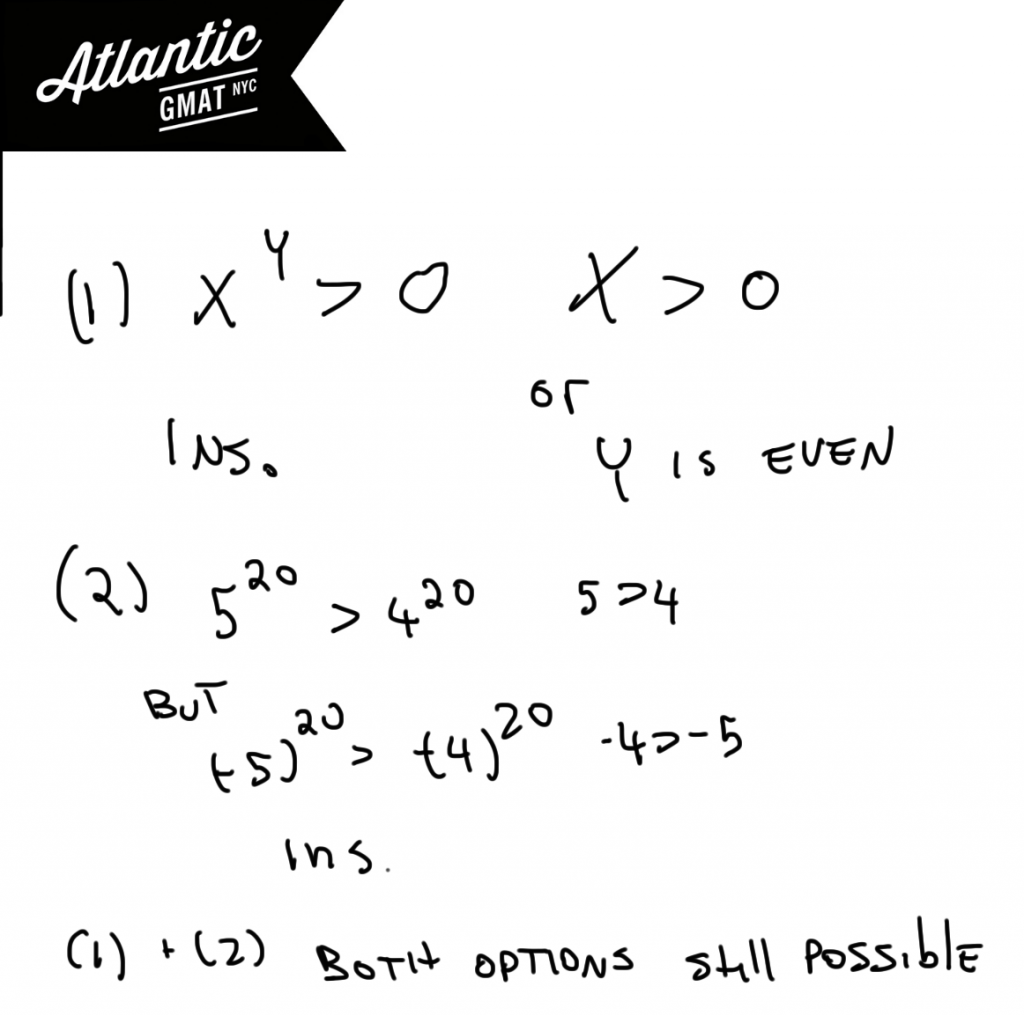 Atlantic
GMAT NYC
(1) X^Y > 0 X > 0
or
INS. Y IS EVEN
(2) 5^20 > 4^20 5 > 4
BUT
(-5)^20 > (-4)^20 -4 > -5
ins.
(1) + (2) BOTH OPTIONS still POSSIBLE